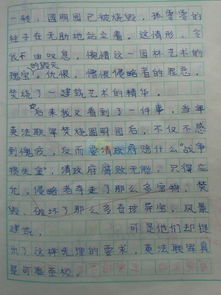 一转，圆明园已被烧毁，孤零零的
柱子在无助地站立着。这情形，令
我不由叹息，惋惜这一园林艺术的
瑰宝的毁灭，仇恨，憎恨侵略者的残忍，
焚烧了一建筑艺术的精华。
后来我又看到了一件事，当年
英法联军焚烧圆明园后，不仅不感
到愧疚，反而要清政府赔什么“战争
损失金”，清政府腐败无能，只得忍
允，侵略者夺走了那么多宝物，焚
毁、破坏了那么多奇珍异宝、风景
建筑， 可是他们却提
出了这样无理的要求，英法联军真
是可恶至极。